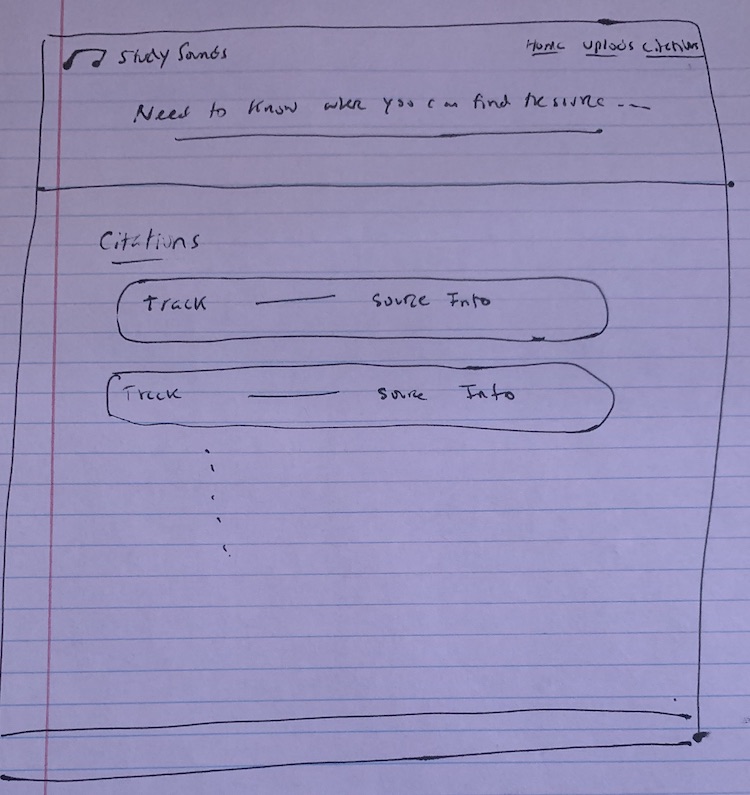 Study Sounds
Home Uploads Citations
Need to know when you can find the source ---
Citations
Track —— Source Info
Track —— Source Info